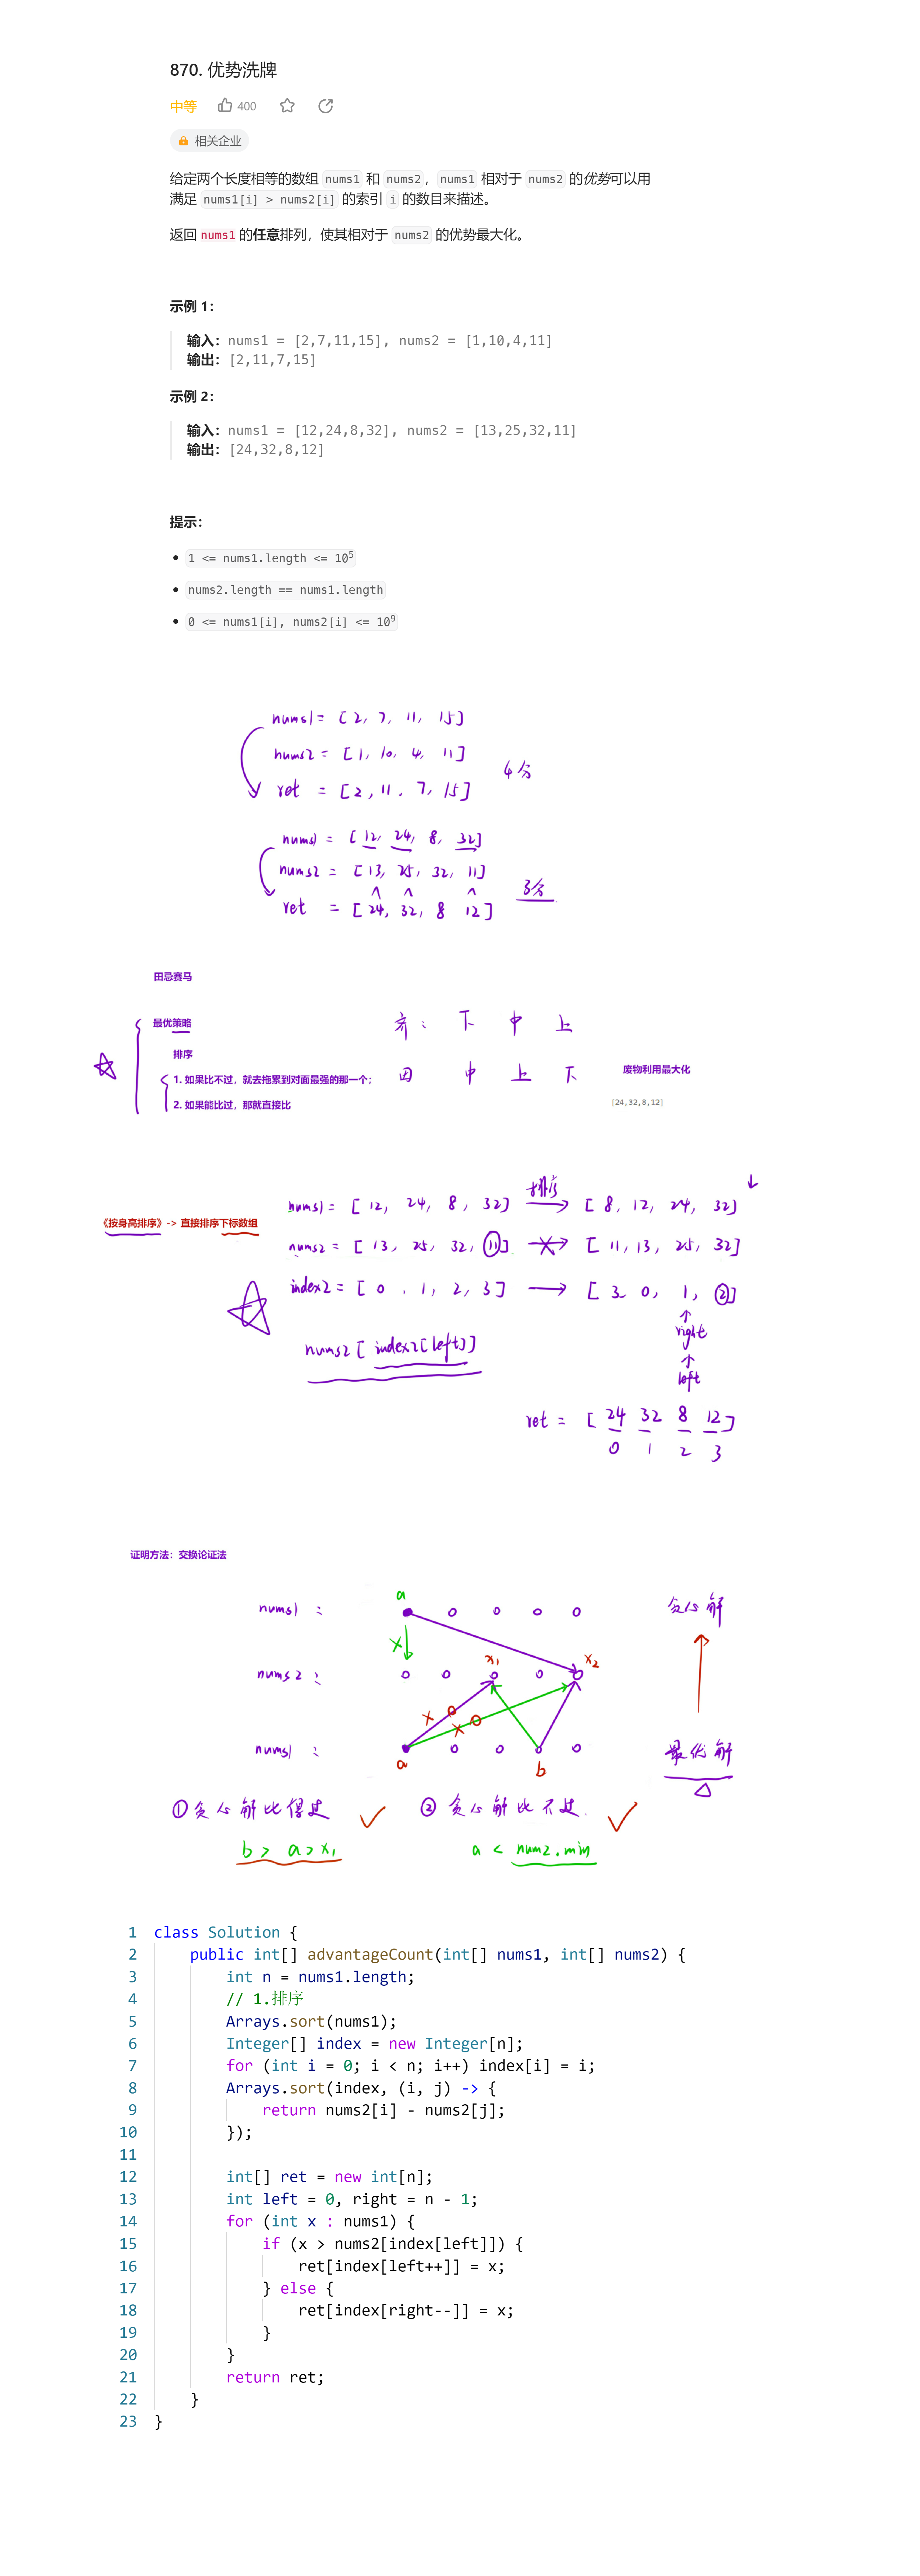 870. 优势洗牌
中等 400
相关企业
给定两个长度相等的数组 nums1 和 nums2，nums1 相对于 nums2 的优势可以用
满足 nums1[i] > nums2[i] 的索引 i 的数目来描述。
返回 nums1 的任意排列，使其相对于 nums2 的优势最大化。
示例 1：
输入：nums1 = [2,7,11,15], nums2 = [1,10,4,11]
输出：[2,11,7,15]
示例 2：
输入：nums1 = [12,24,8,32], nums2 = [13,25,32,11]
输出：[24,32,8,12]
提示：
• 1 <= nums1.length <= 10⁵
• nums2.length == nums1.length
• 0 <= nums1[i], nums2[i] <= 10⁹
nums1 = [2, 7, 11, 15]
nums2 = [1, 10, 4, 11]
ret = [2, 11, 7, 15] 4分
nums1 = [12, 24, 8, 32]
nums2 = [13, 25, 32, 11]
ret = [24, 32, 8 12] 3分
田忌赛马
最优策略
排序
1. 如果比不过，就去拖累到对面最强的那一个；
2. 如果能比过，那就直接比
齐： 下 中 上
田 中 上 下
废物利用最大化
[24,32,8,12]
《按身高排序》-> 直接排序下标数组
nums1 = [12, 24, 8, 32] 排序 [8, 12, 24, 32]
nums2 = [13, 25, 32, 11] [11, 13, 25, 32]
index2 = [0, 1, 2, 3] [3 0, 1, 2]
right
left
nums2[index2[left]]
ret = [24 32 8 12]
0 1 2 3
证明方法：交换论证法
a
nums1 : 贪心解
x1 x2
nums2 :
nums1 : 最优解
a b
① 贪心解比得过 ② 贪心解比不过.
b > a > x1 a < num2.min
1 class Solution {
2 public int[] advantageCount(int[] nums1, int[] nums2) {
3 int n = nums1.length;
4 // 1.排序
5 Arrays.sort(nums1);
6 Integer[] index = new Integer[n];
7 for (int i = 0; i < n; i++) index[i] = i;
8 Arrays.sort(index, (i, j) -> {
9 return nums2[i] - nums2[j];
10 });
11
12 int[] ret = new int[n];
13 int left = 0, right = n - 1;
14 for (int x : nums1) {
15 if (x > nums2[index[left]]) {
16 ret[index[left++]] = x;
17 } else {
18 ret[index[right--]] = x;
19 }
20 }
21 return ret;
22 }
23 }